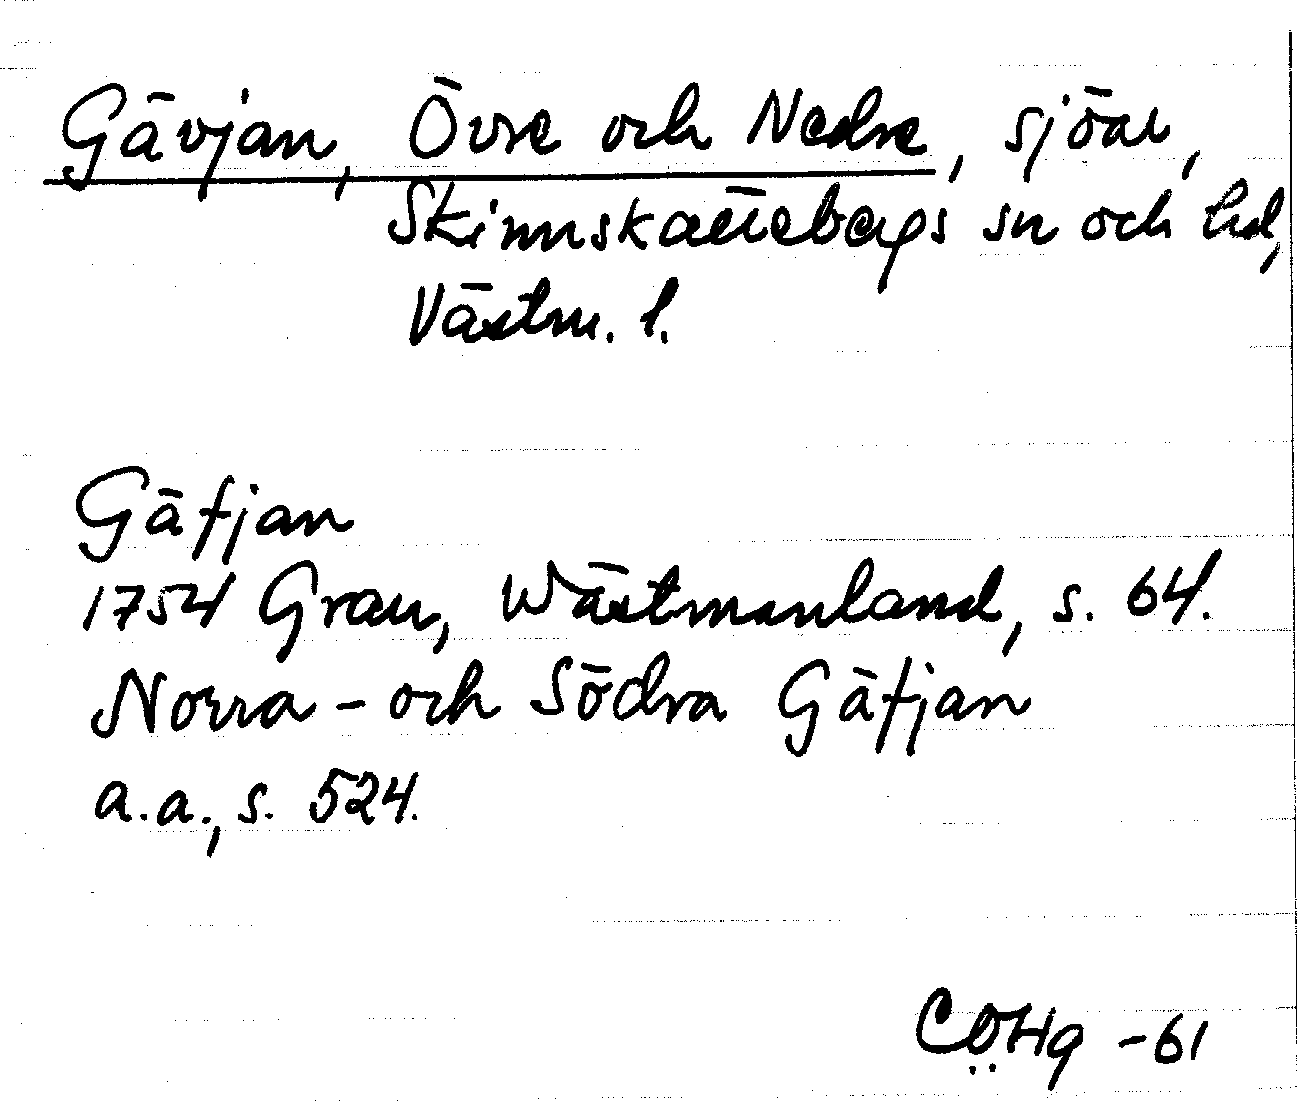 Gävjan, Övre och Nedre, sjöar,
Skinnskattebergs sn och hd,
Västm. l.
Gäfjan
1754 Grau, Wästmanland, s. 64.
Norra - och Södra Gäfjan
a.a., s. 524.
CÖHg -61